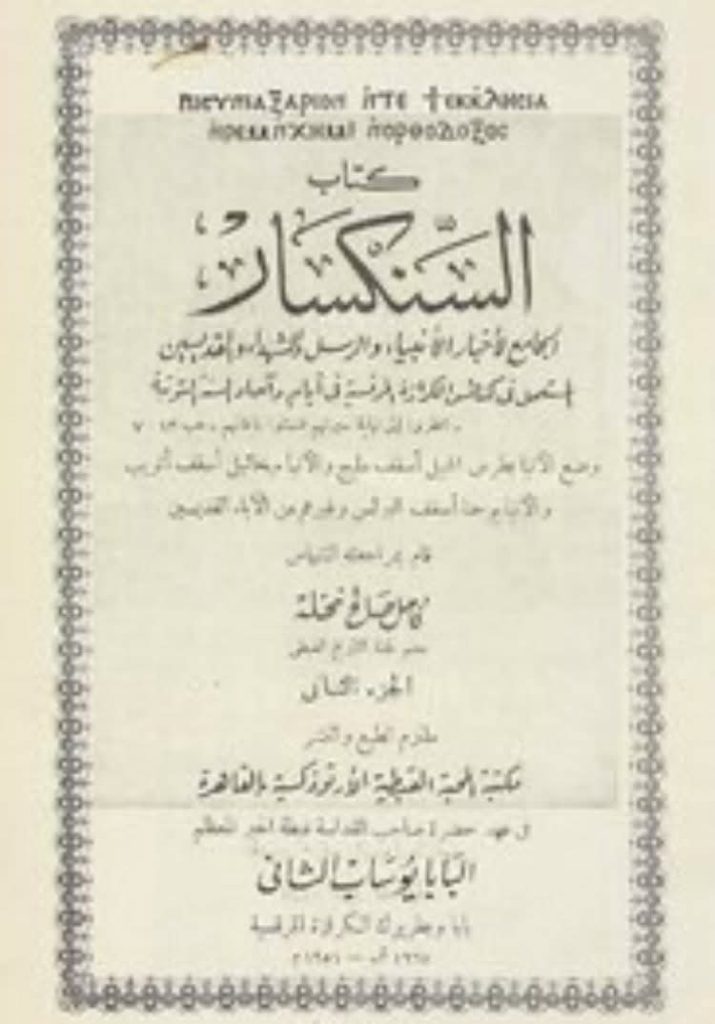 ⲡⲓⲥⲩⲛⲁⲝⲁⲣⲓⲟⲛ ⲛ̀ⲧⲉ ϯⲉⲕⲕⲗⲏⲥⲓⲁ
ⲛ̀ⲣⲉⲙⲛ̀ⲭⲏⲙⲓ ⲛ̀ⲟⲣⲑⲟⲇⲟⲝⲟⲥ
كتاب
السنكسار
الجامع لأخبار الأنبياء والرسل والشهداء والقديسين
المستعمل فى كنائس الكرازة المرقسية فى أيام وآحاد السنة التوتية
وضع الأنبا بطرس الجميل أسقف مليج والأنبا ميخائيل أسقف أتريب
والأنبا يوحنا أسقف البرلس وغيرهم من الآباء القديسين
قام بمراجعته الشماس
كامل صالح نخلة
عضو لجنة التاريخ القبطى
الجزء الثانى
ملتزم الطبع والنشر
مكتبة المحبة القبطية الأرثوذكسية بالقاهرة
فى عهد حضرة صاحب القداسة غبطة الحبر المعظم
البابا يوساب الثانى
بابا وبطريرك الكرازة المرقسية